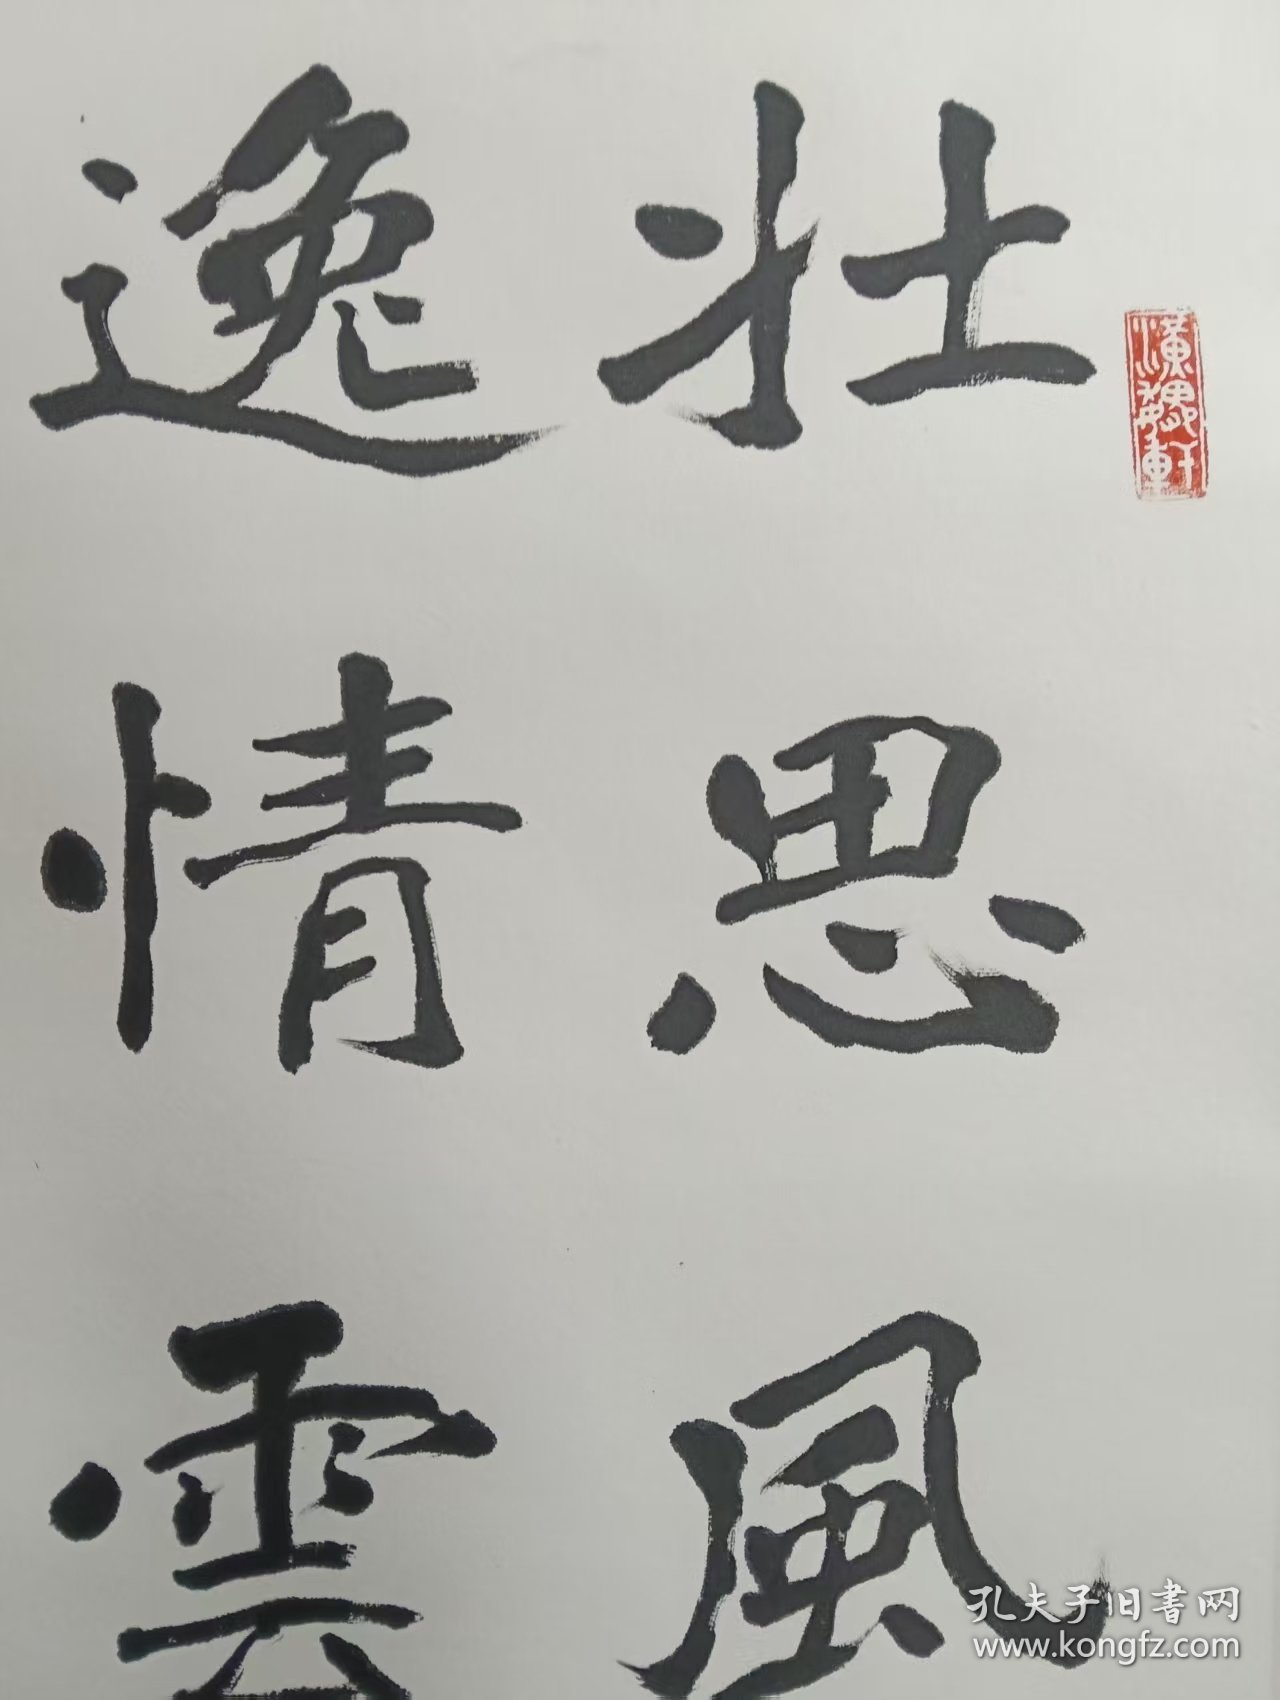 壯思風
逸情雲
孔夫子旧書网
www.kongfz.com